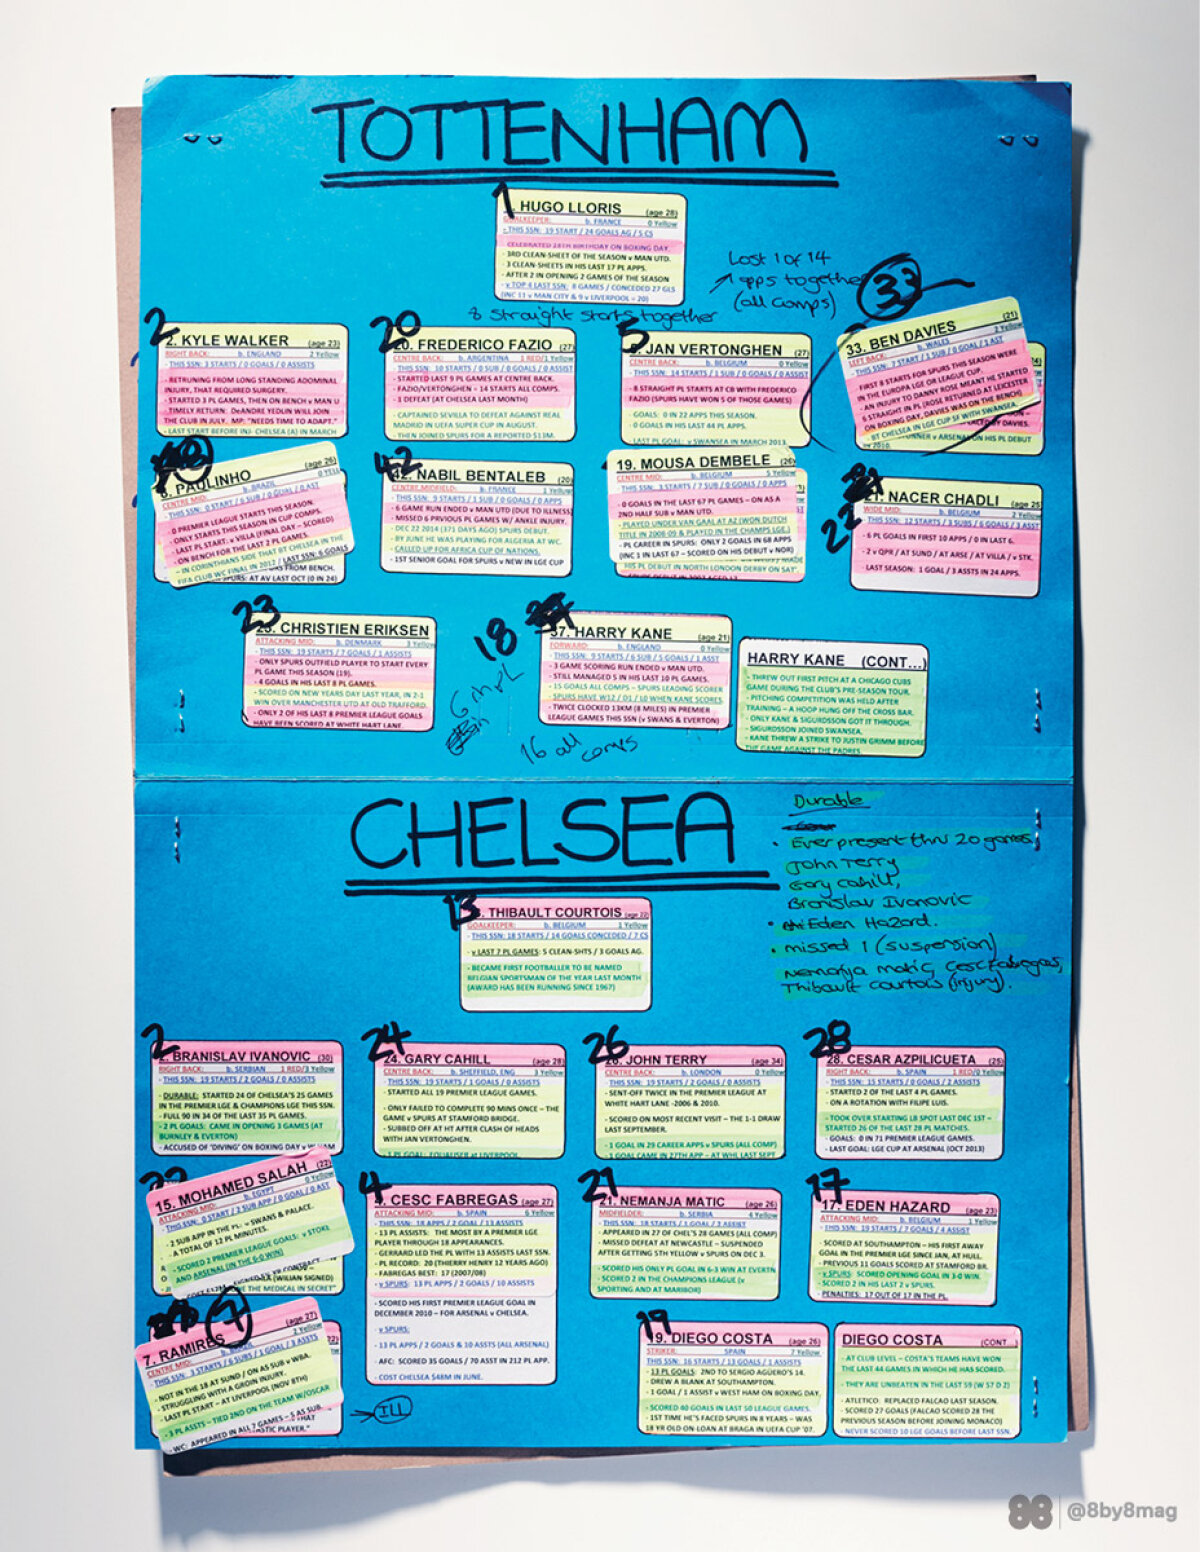 TOTTENHAM
1
. HUGO LLORIS (age 28)
GOALKEEPER: b. FRANCE 0 Yellow
- THIS SSN: 19 START / 24 GOALS AG / 5 CS
- CELEBRATED 28TH BIRTHDAY ON BOXING DAY.
- 3RD CLEAN-SHEET OF THE SEASON v MAN UTD.
- 3 CLEAN-SHEETS IN HIS LAST 17 PL APPS.
- AFTER 2 IN OPENING 2 GAMES OF THE SEASON
- v TOP 4 LAST SSN: 8 GAMES / CONCEDED 27 GLS
(INC 11 v MAN CITY & 9 v LIVERPOOL – 20)
Lost 1 of 14
apps together
(all comps)
8 Straight starts together
2
2. KYLE WALKER (age 23)
RIGHT BACK: b. ENGLAND 2 Yellow
- THIS SSN: 3 STARTS / 0 GOALS / 0 ASSISTS
- RETRUNING FROM LONG STANDING ADOMINAL
INJURY, THAT REQUIRED SURGERY.
- STARTED 3 PL GAMES, THEN ON BENCH v MAN U
- TIMELY RETURN: DeANDRE YEDLIN WILL JOIN
THE CLUB IN JULY. MP: "NEEDS TIME TO ADAPT."
- LAST START BEFORE INJ- CHELSEA (A) IN MARCH
20
20. FREDERICO FAZIO (27)
CENTRE BACK: b. ARGENTINA 1 RED/1 Yellow
- THIS SSN: 10 STARTS / 0 SUB / 0 GOALS / 0 ASSIST
- STARTED LAST 9 PL GAMES AT CENTRE BACK.
- FAZIO/VERTONGHEN – 14 STARTS ALL COMPS.
- 1 DEFEAT (AT CHELSEA LAST MONTH)
- CAPTAINED SEVILLA TO DEFEAT AGAINST REAL
MADRID IN UEFA SUPER CUP IN AUGUST.
- THEN JOINED SPURS FOR A REPORTED $13M.
5
JAN VERTONGHEN (27)
CENTRE BACK: b. BELGIUM 0 Yellow
- THIS SSN: 14 STARTS / 1 SUB / 0 GOALS / 0 ASSIST
- 8 STRAIGHT PL STARTS AT CB WITH FREDERICO
FAZIO (SPURS HAVE WON 5 OF THOSE GAMES)
- GOALS: 0 IN 22 APPS THIS SEASON.
0 GOALS IN HIS LAST 44 PL APPS.
LAST PL GOAL: v SWANSEA IN MARCH 2013.
33
33. BEN DAVIES (21)
LEFT BACK: b. WALES 2 Yellow
- THIS SSN: 7 START / 1 SUB / 0 GOAL / 1 AST
- FIRST 8 STARTS FOR SPURS THIS SEASON WERE
IN THE EUROPA LGE OR LEAGUE CUP.
- AN INJURY TO DANNY ROSE MEANT HE STARTED
6 STRAIGHT IN PL (ROSE RETURNED AT LEICESTER
ON BOXING DAY, DAVIES WAS ON THE BENCH)
- BT CHELSEA IN LGE CUP SF WITH SWANSEA.
8. PAULINHO (age 26)
CENTRE MID: b. BRAZIL 0 YELL
- THIS SSN: 0 START / 6 SUB / 0 GOAL / 0 AST
- 0 PREMIER LEAGUE STARTS THIS SEASON.
- ONLY STARTS THIS SEASON IN CUP COMPS.
- LAST PL START: v VILLA (FINAL DAY – SCORED)
- ON BENCH FOR THE LAST 2 PL GAMES.
- IN CORINTHIANS SIDE THAT BT CHELSEA IN THE
FIFA CLUB WC FINAL IN 2012 / LAST SSN: 6 GOALS
SPURS: AT AV LAST OCT (0 IN 24)
42
42. NABIL BENTALEB (20)
CENTRE MIDFIELD: b. FRANCE 1 Yellow
- THIS SSN: 9 STARTS / 1 SUB / 0 GOALS / 0 APPS
- 6 GAME RUN ENDED v MAN UTD (DUE TO ILLNESS)
- MISSED 6 PRVIOUS PL GAMES W/ ANKLE INJURY.
- DEC 22 2014 (371 DAYS AGO) SPURS DEBUT.
- BY JUNE HE WAS PLAYING FOR ALGERIA AT WC.
- CALLED UP FOR AFRICA CUP OF NATIONS.
- 1ST SENIOR GOAL FOR SPURS v NEW IN LGE CUP
19. MOUSA DEMBELE (26)
CENTRE MID: b. BELGIUM 5 Yellow
- THIS SSN: 3 STARTS / 7 SUB / 0 GOALS / 0 APPS
- 0 GOALS IN THE LAST 67 PL GAMES – ON AS A
2ND HALF SUB v MAN UTD.
- PLAYED UNDER VAN GAAL AT AZ (WON DUTCH
TITLE IN 2008-09 & PLAYED IN THE CHAMPS LGE.)
- PL CAREER IN SPURS: ONLY 2 GOALS IN 68 APPS
(INC 1 IN LAST 67 – SCORED ON HIS DEBUT v NOR)
HIS PL DEBUT IN NORTH LONDON DERBY ON SAT
22
21. NACER CHADLI (age 25)
WIDE MID: b. BELGIUM 2 Yellow
- THIS SSN: 12 STARTS / 3 SUBS / 6 GOALS / 3 ASST
- 6 PL GOALS IN FIRST 10 APPS / 0 IN LAST 6.
- 2 v QPR / AT SUND / AT ARSE / AT VILLA / v STK.
- LAST SEASON: 1 GOAL / 3 ASSTS IN 24 APPS.
23
23. CHRISTIEN ERIKSEN
ATTACKING MID: b. DENMARK 3 Yellow
- THIS SSN: 19 STARTS / 7 GOALS / 1 ASSISTS
- ONLY SPURS OUTFIELD PLAYER TO START EVERY
PL GAME THIS SEASON (19).
- 4 GOALS IN HIS LAST 8 PL GAMES.
- SCORED ON NEW YEARS DAY LAST YEAR, IN 2-1
WIN OVER MANCHESTER UTD AT OLD TRAFFORD.
- ONLY 2 OF HIS LAST 8 PREMIER LEAGUE GOALS
HAVE BEEN SCORED AT WHITE HART LANE.
18
6 in PL
16 all comps
37. HARRY KANE (age 21)
FORWARD: b. ENGLAND 0 Yellow
- THIS SSN: 9 STARTS / 6 SUB / 5 GOALS / 1 ASST
- 3 GAME SCORING RUN ENDED v MAN UTD.
- STILL MANAGED 5 IN HIS LAST 10 PL GAMES.
- 15 GOALS ALL COMPS – SPURS LEADING SCORER
- SPURS HAVE W12 / D1 / L0 WHEN KANE SCORES.
- TWICE CLOCKED 13KM (8 MILES) IN PREMIER
LEAGUE GAMES THIS SSN (v SWANS & EVERTON)
HARRY KANE (CONT...)
- THREW OUT FIRST PITCH AT A CHICAGO CUBS
GAME DURING THE CLUB'S PRE-SEASON TOUR.
- PITCHING COMPETITION WAS HELD AFTER
TRAINING – A HOOP HUNG OFF THE CROSS BAR.
- ONLY KANE & SIGURDSSON GOT IT THROUGH.
- SIGURDSSON JOINED SWANSEA.
- KANE THREW A STRIKE TO JUSTIN GRIMM BEFORE
THE GAME AGAINST THE PADRES.
CHELSEA
Durable
• Ever present thru 20 games
John Terry
Gary Cahill,
Branislav Ivanovic
• Eden Hazard.
• missed 1 (suspension)
Nemanja Matic, Cesc Fabregas,
Thibault Courtois (injury).
13
. THIBAULT COURTOIS (age 22)
GOALKEEPER: b. BELGIUM 1 Yellow
- THIS SSN: 18 STARTS / 14 GOALS CONCEDED / 7 CS
- v LAST 7 PL GAMES: 5 CLEAN-SHTS / 3 GOALS AG.
- BECAME FIRST FOOTBALLER TO BE NAMED
BELGIAN SPORTSMAN OF THE YEAR LAST MONTH
(AWARD HAS BEEN RUNNING SINCE 1967)
2
2. BRANISLAV IVANOVIC (30)
RIGHT BACK: b. SERBIAN 1 RED/3 Yellow
- THIS SSN: 19 STARTS / 2 GOALS / 0 ASSISTS
- DURABLE: STARTED 24 OF CHELSEA'S 25 GAMES
IN THE PREMIER LGE & CHAMPIONS LGE THIS SSN.
- FULL 90 IN 34 OF THE LAST 35 PL GAMES.
- 2 PL GOALS: CAME IN OPENING 3 GAMES (AT
BURNLEY & EVERTON)
- ACCUSED OF 'DIVING' ON BOXING DAY v W HAM
24
24. GARY CAHILL (age 28)
CENTRE BACK: b. SHEFFIELD, ENG 3 Yellow
- THIS SSN: 19 STARTS / 1 GOALS / 0 ASSISTS
- STARTED ALL 19 PREMIER LEAGUE GAMES.
- ONLY FAILED TO COMPLETE 90 MINS ONCE – THE
GAME v SPURS AT STAMFORD BRIDGE.
- SUBBED OFF AT HT AFTER CLASH OF HEADS
WITH JAN VERTONGHEN.
- 1 PL GOAL: EQUALISER AT LIVERPOOL
26
26. JOHN TERRY (age 34)
CENTRE BACK: b. LONDON 0 Yellow
- THIS SSN: 19 STARTS / 2 GOALS / 0 ASSISTS
- SENT-OFF TWICE IN THE PREMIER LEAGUE AT
WHITE HART LANE -2006 & 2010.
- SCORED ON MOST RECENT VISIT – THE 1-1 DRAW
LAST SEPTEMBER.
- 1 GOAL IN 29 CAREER APPS v SPURS (ALL COMP)
- 1 GOAL CAME IN 27TH APP – AT WHL LAST SEPT
28
28. CESAR AZPILICUETA (25)
RIGHT BACK: b. SPAIN 1 RED/0 Yellow
- THIS SSN: 15 STARTS / 0 GOALS / 2 ASSISTS
- STARTED 2 OF THE LAST 4 PL GAMES.
- ON A ROTATION WITH FILIPE LUIS.
- TOOK OVER STARTING LB SPOT LAST DEC 1ST –
STARTED 26 OF THE LAST 28 PL MATCHES.
- GOALS: 0 IN 71 PREMIER LEAGUE GAMES.
- LAST GOAL: LGE CUP AT ARSENAL (OCT 2013)
15. MOHAMED SALAH (22)
ATTACKING MID: b. EGYPT 0 Yellow
- THIS SSN: 0 START / 2 SUB APP / 0 GOAL / 0 AST
- 2 SUB APP IN THE PL: v SWANS & PALACE.
- A TOTAL OF 12 PL MINUTES.
- SCORED 2 PREMIER LEAGUE GOALS: v STOKE
AND ARSENAL (IN THE 6-0 WIN)
(WILIAN SIGNED)
THE MEDICAL IN SECRET"
4
4. CESC FABREGAS (age 27)
ATTACKING MID: b. SPAIN 6 Yellow
- THIS SSN: 18 APPS / 2 GOAL / 13 ASSISTS
- 13 PL ASSISTS: THE MOST BY A PREMIER LGE
PLAYER THROUGH 18 APPEARANCES.
- GERRARD LED THE PL WITH 13 ASSISTS LAST SSN.
- PL RECORD: 20 (THIERRY HENRY 12 YEARS AGO)
- FABREGAS BEST: 17 (2007/08)
- v SPURS: 13 PL APPS / 2 GOALS / 10 ASSISTS
- SCORED HIS FIRST PREMIER LEAGUE GOAL IN
DECEMBER 2010 – FOR ARSENAL v CHELSEA.
- v SPURS:
- 13 PL APPS / 2 GOALS & 10 ASSTS (ALL ARSENAL)
- AFC: SCORED 35 GOALS / 70 ASST IN 212 PL APP.
- COST CHELSEA $48M IN JUNE.
21
21. NEMANJA MATIC (age 26)
MIDFIELDER: b. SERBIA 4 Yellow
- THIS SSN: 18 STARTS / 1 GOAL / 2 ASSIST
- APPEARED IN 27 OF CHEL'S 28 GAMES (ALL COMP)
- MISSED DEFEAT AT NEWCASTLE – SUSPENDED
AFTER GETTING 5TH YELLOW v SPURS ON DEC 3.
- SCORED HIS ONLY PL GOAL IN 6-3 WIN AT EVERTN
- SCORED 2 IN THE CHAMPIONS LEAGUE (v
SPORTING AND AT MARIBOR)
17
17. EDEN HAZARD (age 23)
ATTACKING MID: b. BELGIUM 1 Yellow
- THIS SSN: 19 STARTS / 7 GOALS / 4 ASSIST
- SCORED AT SOUTHAMPTON – HIS FIRST AWAY
GOAL IN THE PREMIER LGE SINCE JAN, AT HULL.
- PREVIOUS 11 GOALS SCORED AT STAMFORD BR.
- v SPURS: SCORED OPENING GOAL IN 3-0 WIN.
- SCORED 2 IN HIS LAST 2 v SPURS.
- PENALTIES: 17 OUT OF 17 IN THE PL.
7
7. RAMIRES (age 27)
CENTRE MID: b. BRAZIL 2 Yellow
- THIS SSN: 3 STARTS / 6 SUBS / 1 GOAL / 3 ASSISTS
- NOT IN THE 18 AT SUND / ON AS SUB v WBA.
- STRUGGLING WITH A GROIN INJURY.
- LAST PL START – AT LIVERPOOL (NOV 8TH)
- 3 PL ASSTS – TIED 2ND ON THE TEAM W/OSCAR
- WC: APPEARED IN ALL 7 GAMES – 5 AS SUB.
ILL
19
19. DIEGO COSTA (age 26)
STRIKER: SPAIN 7 Yellow
THIS SSN: 16 STARTS / 13 GOALS / 1 ASSISTS
- 13 PL GOALS: 2ND TO SERGIO AGÜERO'S 14.
- DREW A BLANK AT SOUTHAMPTON.
- 1 GOAL / 1 ASSIST v WEST HAM ON BOXING DAY.
- SCORED 40 GOALS IN LAST 50 LEAGUE GAMES.
- 1ST TIME HE'S FACED SPURS IN 8 YEARS – WAS
18 YR OLD ON-LOAN AT BRAGA IN UEFA CUP '07.
DIEGO COSTA (CONT...)
- AT CLUB LEVEL – COSTA'S TEAMS HAVE WON
THE LAST 44 GAMES IN WHICH HE HAS SCORED.
- THEY ARE UNBEATEN IN THE LAST 59 (W 57 D 2)
- ATLETICO: REPLACED FALCAO LAST SEASON.
- SCORED 27 GOALS (FALCAO SCORED 28 THE
PREVIOUS SEASON BEFORE JOINING MONACO)
- NEVER SCORED 10 LGE GOALS BEFORE LAST SSN.
88 @8by8mag